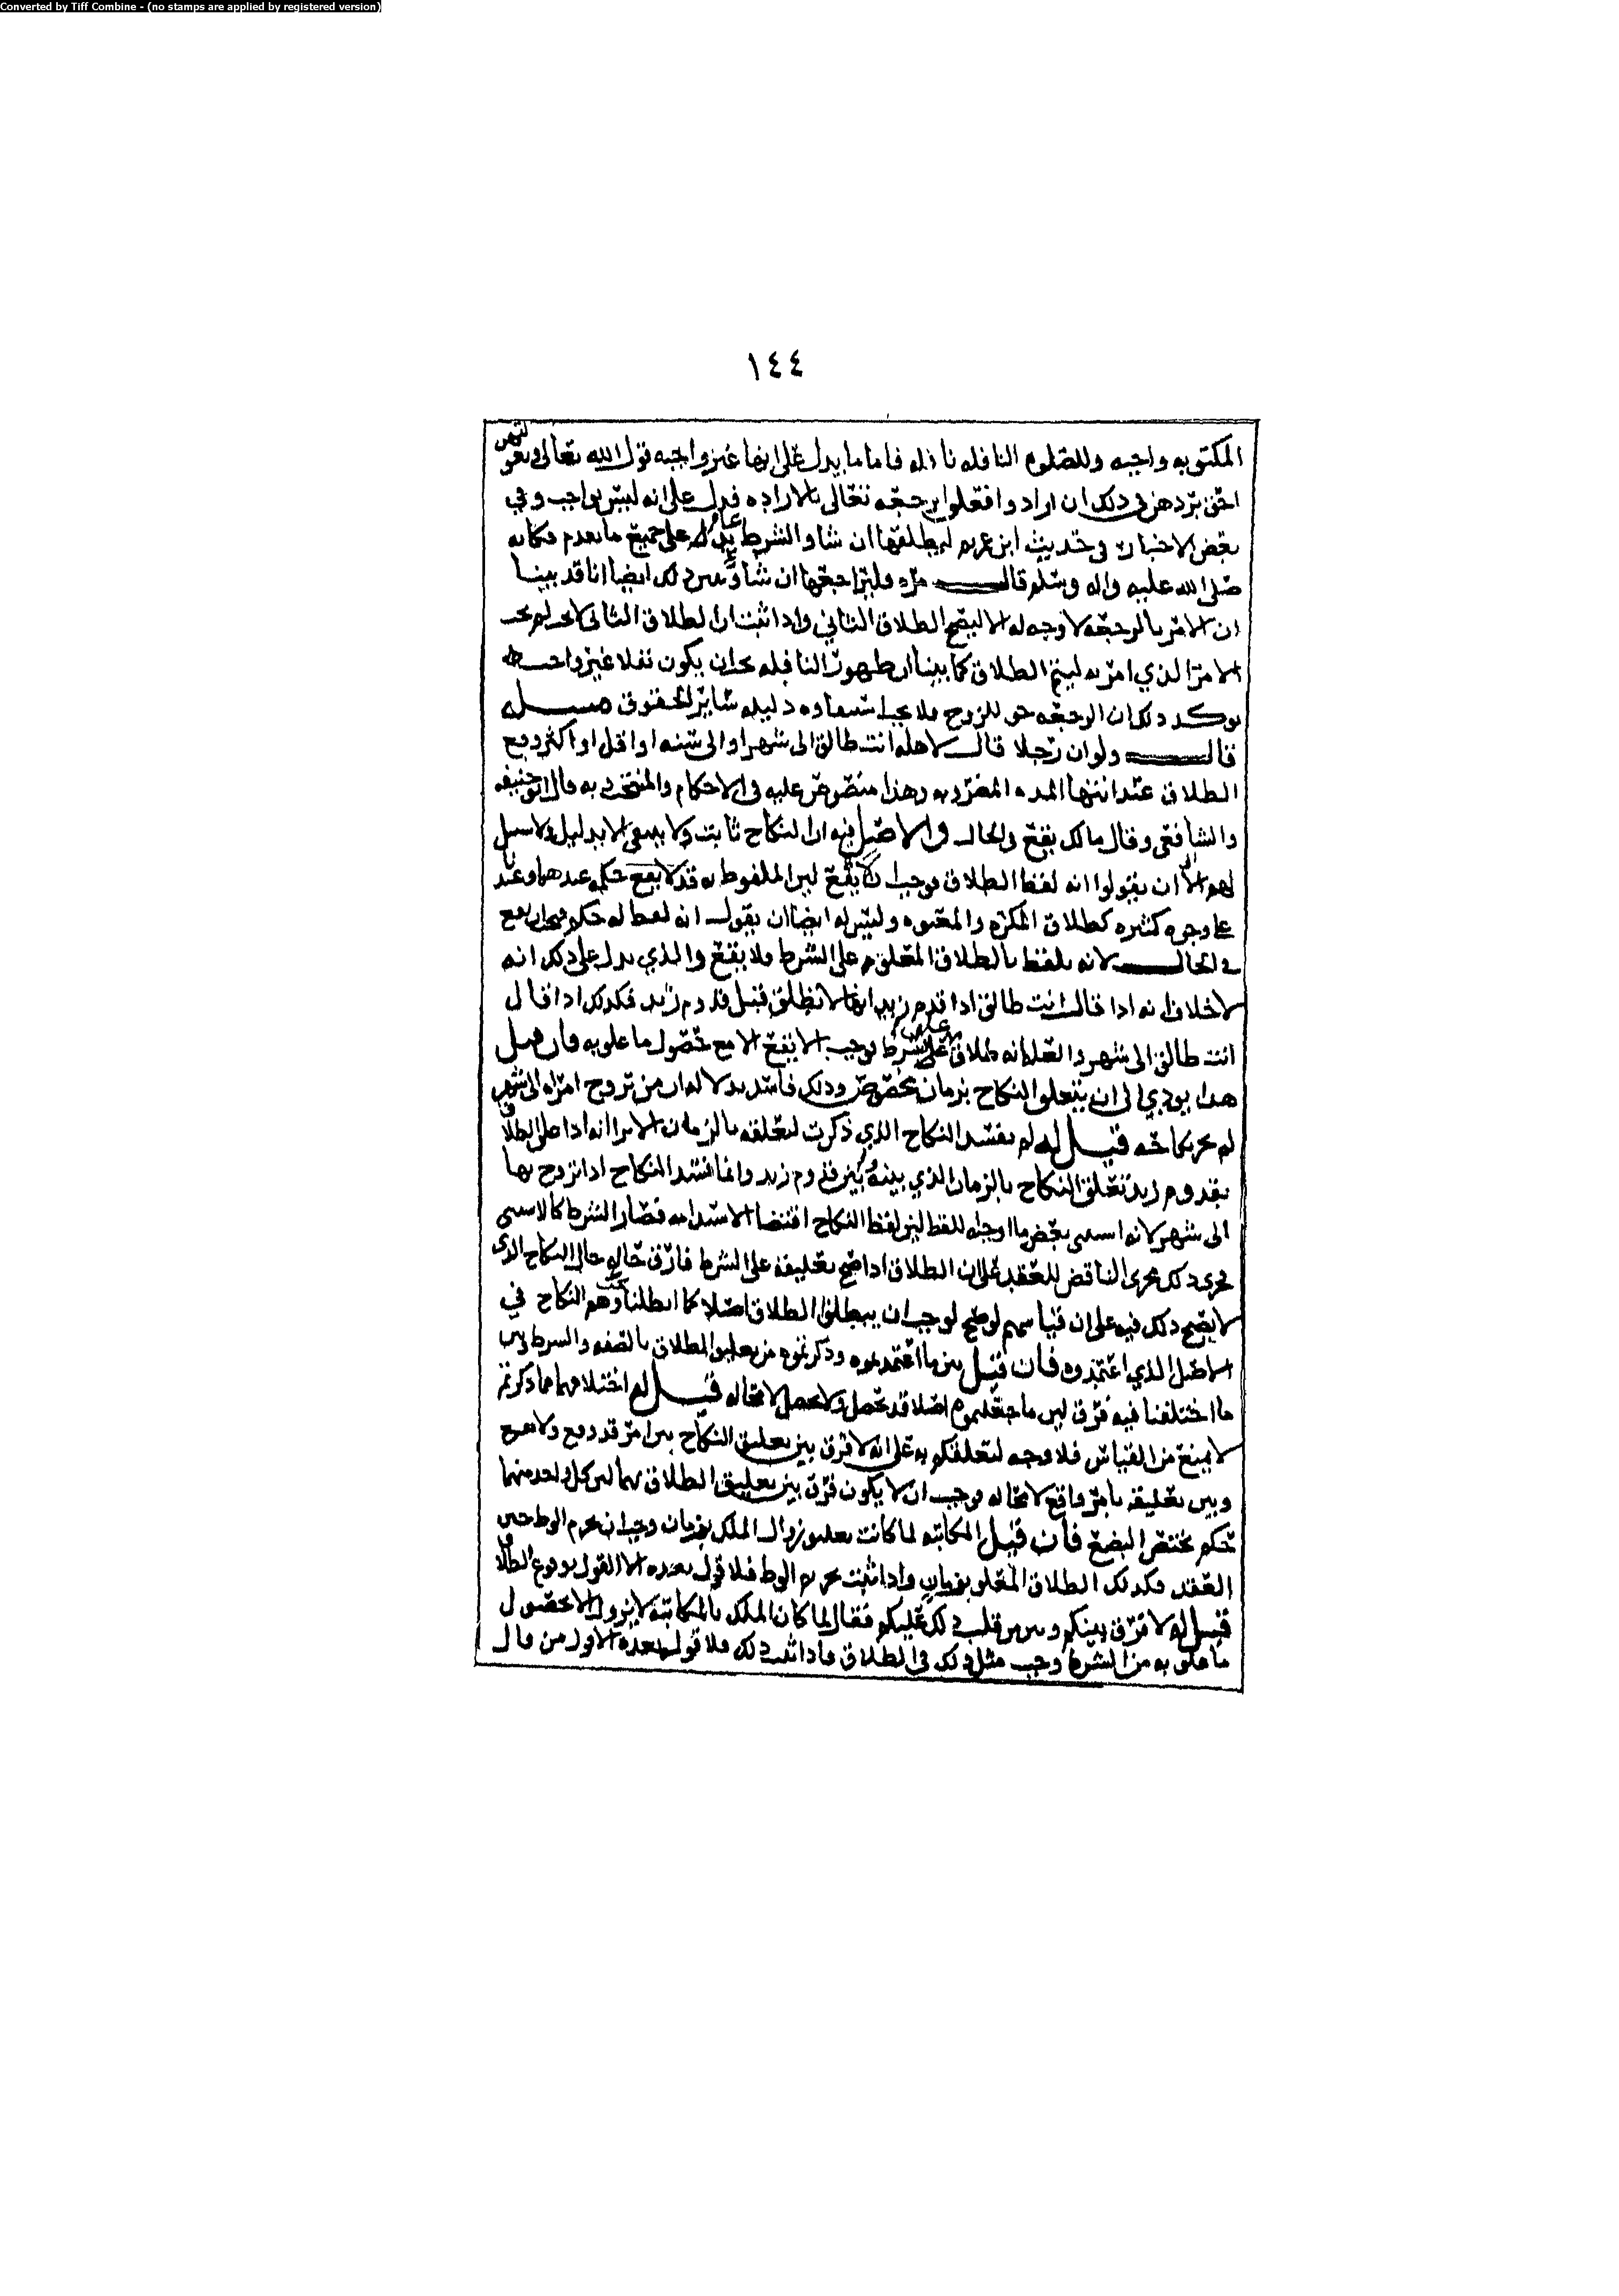 Converted by Tiff Combine - (no stamps are applied by registered version)
١٤٤
المكتوبه واجبه وللصلوه النافله نافله فاما ما يدل على انها غير واجبه قول الله تعالى وبعولتهن
احق بردهن في ذلك ان ارادوا فعلق الرجعه تعالى بالاراده فدل على انه ليس بواجب وفي
بعض الاخبار في حديث ابن عمر ثم ليطلقها ان شا والشرط عامل على جميع ما تقدم فكانه
صلى الله عليه واله وسلم قال مره فليراجعها ان شا ذلك ايضا انا قد بينا
ان الامر بالرجعه لا وجه له الا ليصح الطلاق الثاني واذا ثبت ان الطلاق الثاني لا يجب لم يجب
الامر الذي امر به ليتم الطلاق كما بينا ان طهور النافله يجب ان يكون نفلا غير واجب
يوكد ذلك ان الرجعه حق للزوج فلا يجب استيفاوه دليله سائر الحقوق مسله
قال ولو ان رجلا قال لاهله انت طالق الى شهر او الى سنه او اقل او اكثر وقع
الطلاق عند انتها المده المضروبه وهذا منصوص عليه في الاحكام والمنتخب وبه قال ابو حنيفه
والشافعي وقال مالك يقع في الحال والاصل فيه ان النكاح ثابت ولا ينتفي الا بدليل ولا سبيل
لهم الى ان يقولوا انه لفظ الطلاق فوجب ان يقع لان الملفوط به قد لا يقع حكمه عندهم وعندنا
على وجوه كثيره كطلاق المكره والمعتوه وليس له ايضا ان يقول انه لفظ له حكم فيجب ان يقع
في الحال لانه يلفظ بالطلاق المعلق على الشرط فلا يقع والذي يدل على ذلك انه
لا خلاف انه اذا قال انت طالق اذا قدم زيد انها لا تطلق قبل قدوم زيد فكذلك اذا قال
انت طالق الى شهر والعله انه طلاق على شرط فوجب الا يقع الا مع حصول ما علق به فان قيل
هذا يودي الى ان يتعلق النكاح بزمان مخصوص وذلك فاسد بدلاله ان من تزوج امراه الى شهر
لم يجز نكاحه قيل له لم يفسد النكاح الذي ذكرت لتعلقه بالزمان الا ترا انه اذا علق الطلاق
بقدوم زيد تعلق النكاح بالزمان الذي بينه وبين قدوم زيد وانما افسد النكاح اذا تزوج بها
الى شهر لانه استثنى بعض ما اوجبه اللفظ لان لفظ النكاح اقتضا الاستدامه فصار الشرط كالاستثنى
فجرى ذلك مجرى الناقض للعقد على ان الطلاق اذا صح تعليقه على الشرط فارق حاله حال النكاح الذي
لا يصح ذلك فيه على ان قياسهم لو صح لوجب ان يبطل الطلاق اصلا كما ابطلنا نحن وهم النكاح في
الاصل الذي اعتمدوه فان قيل بين ما اعتمدتموه وذكرتموه من تعليق الطلاق بالصفه والشرط وبين
ما اختلفنا فيه فرق لان ما جعلتموه اصلا قد يحصل ولا يحصل لا محاله قيل له اختلافهما فيما ذكرتم
لا يمنع من القياس فلا وجه لتعلقكم به على انه لا فرق بين تعليق النكاح بين امر قد وقع ولا يقع
وبين تعليقه بامر واقع لا محاله فوجب ان لا يكون فرق بين تعليق الطلاق بهما لان كل واحد منهما
حكم يختص البضع فان قيل المكاتبه لما كانت تعليق زوال الملك بزمان وجب ان يحرم الوطا حين
العقد فكذلك الطلاق المعلق بزمان واذا ثبت تحريم الوط فلا قول بعده الا القول بوقوع الطلاق
قيل له لا فرق بينكم وبين من قلب ذلك عليكم فقال لما كان الملك بالمكاتبه لا يزول الا بحصول
ما علق به من الشرط وجب مثل ذلك في الطلاق فاذا ثبت ذلك فلا قول بعده الا قول من قال